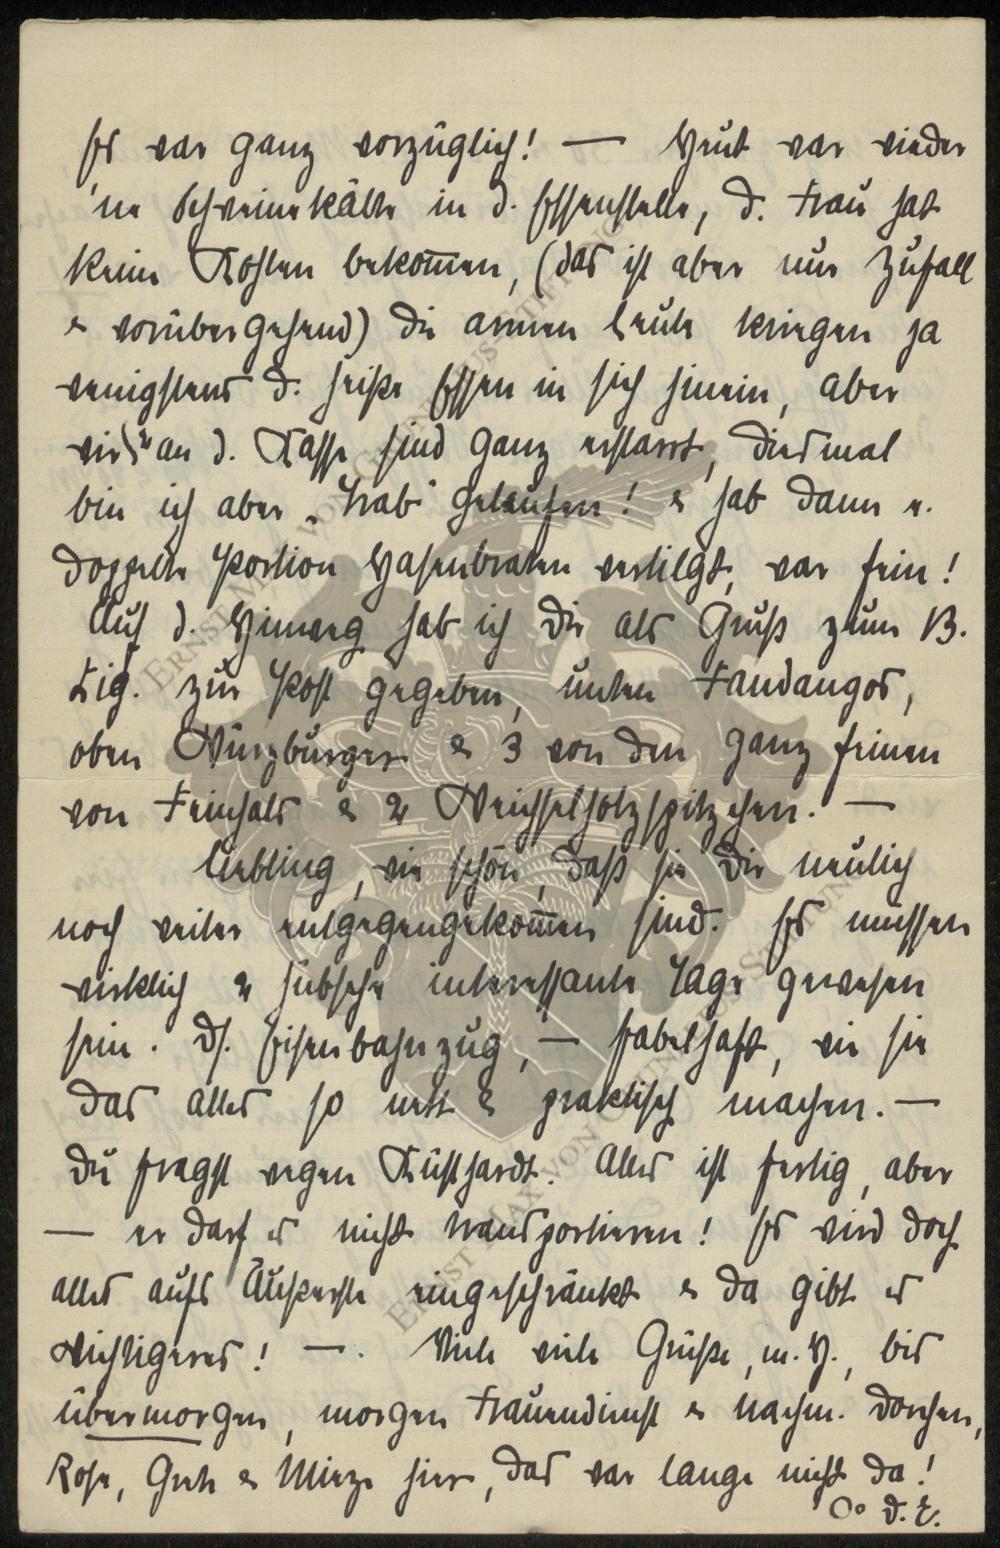 Es war ganz vorzüglich! — Heut war wieder
'ne Schweinekälte in d. Essenstelle, d. Frau hat
keine Kohlen bekom̅en, (das ist aber nur Zufall
& vorübergehend) die armen Leute kriegen ja
wenigstens d. heiße Essen in sich hinein, aber
wir 2 an d. Kasse sind ganz erstarrt, diesmal
bin ich aber „Trab“ gelaufen! & hab dann e.
doppelte Portion Hasenbraten vertilgt, war fein!
Auf d. Hinweg hab ich Dir als Gruß zum 13.
Zig. zur Post gegeben, unten Fandangos,
oben Würzburger & 3 von den ganz feinen
von Feinhals & 2 Weichselholzspitzchen. —
Liebling, wie schön, daß sie Dir neulich
noch weiter entgegengekom̅en sind. Es müssen
wirklich 2 hübsche interessante Tage gewesen
sein. Ds. Eisenbahnzug, — fabelhaft, wie sie
das alles so nett & praktisch machen. —
Du fragst wegen Küsthardt. Alles ist fertig, aber
— er darf es nicht transportieren! Es wird doch
alles aufs Äußerste eingeschränkt & da gibt es
Wichtigeres! —. Viele viele Grüße, m. H., bis
übermorgen, morgen Frauendienst & nachm. Dorchen,
Rose, Grete & Mieze hier, das war lange nicht da!
Oo d. E.
ERNST MAX VON GRUNELIUS-STIFTUNG
ERNST MAX VON GRUNELIUS-STIFTUNG